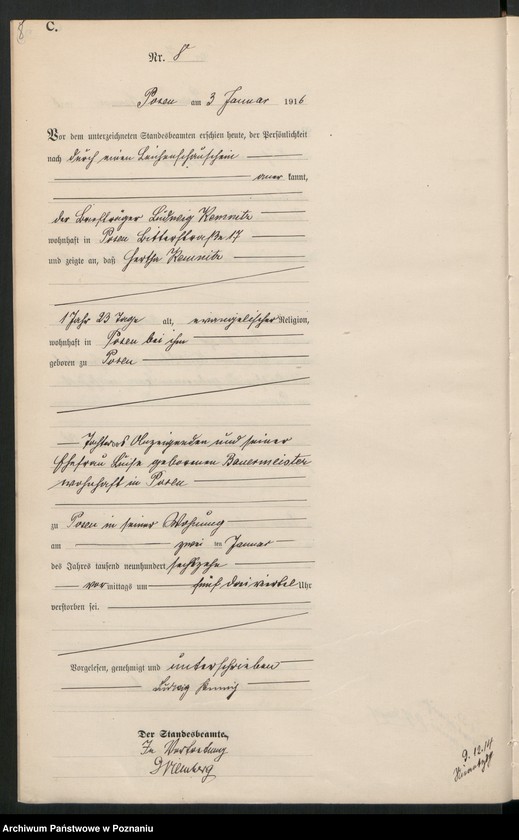 8
C.
Nr. 8
Posen am 3 Januar 1916
Vor dem unterzeichneten Standesbeamten erschien heute, der Persönlichkeit
nach durch einen Leichenschauschein
aner kannt,
der Briefträger Ludwig Kemnitz
wohnhaft in Posen Bitterstraße 17
und zeigte an, daß Hertha Kemnitz
1 Jahr 23 Tage alt, evangelischer Religion,
wohnhaft in Posen bei ihm
geboren zu Posen
Tochter des Anzeigenden und seiner
Ehefrau Luise geborenen Bauermeister
wohnhaft in Posen
zu Posen in seiner Wohnung
am zwei ten Januar
des Jahres tausend neunhundert sechszehn
vor mittags um fünf dreiviertel Uhr
verstorben sei.
Vorgelesen, genehmigt und unterschrieben
Ludwig Kemnitz
Der Standesbeamte,
In Vertretung
9.12.14
Archiwum Państwowe w Poznaniu